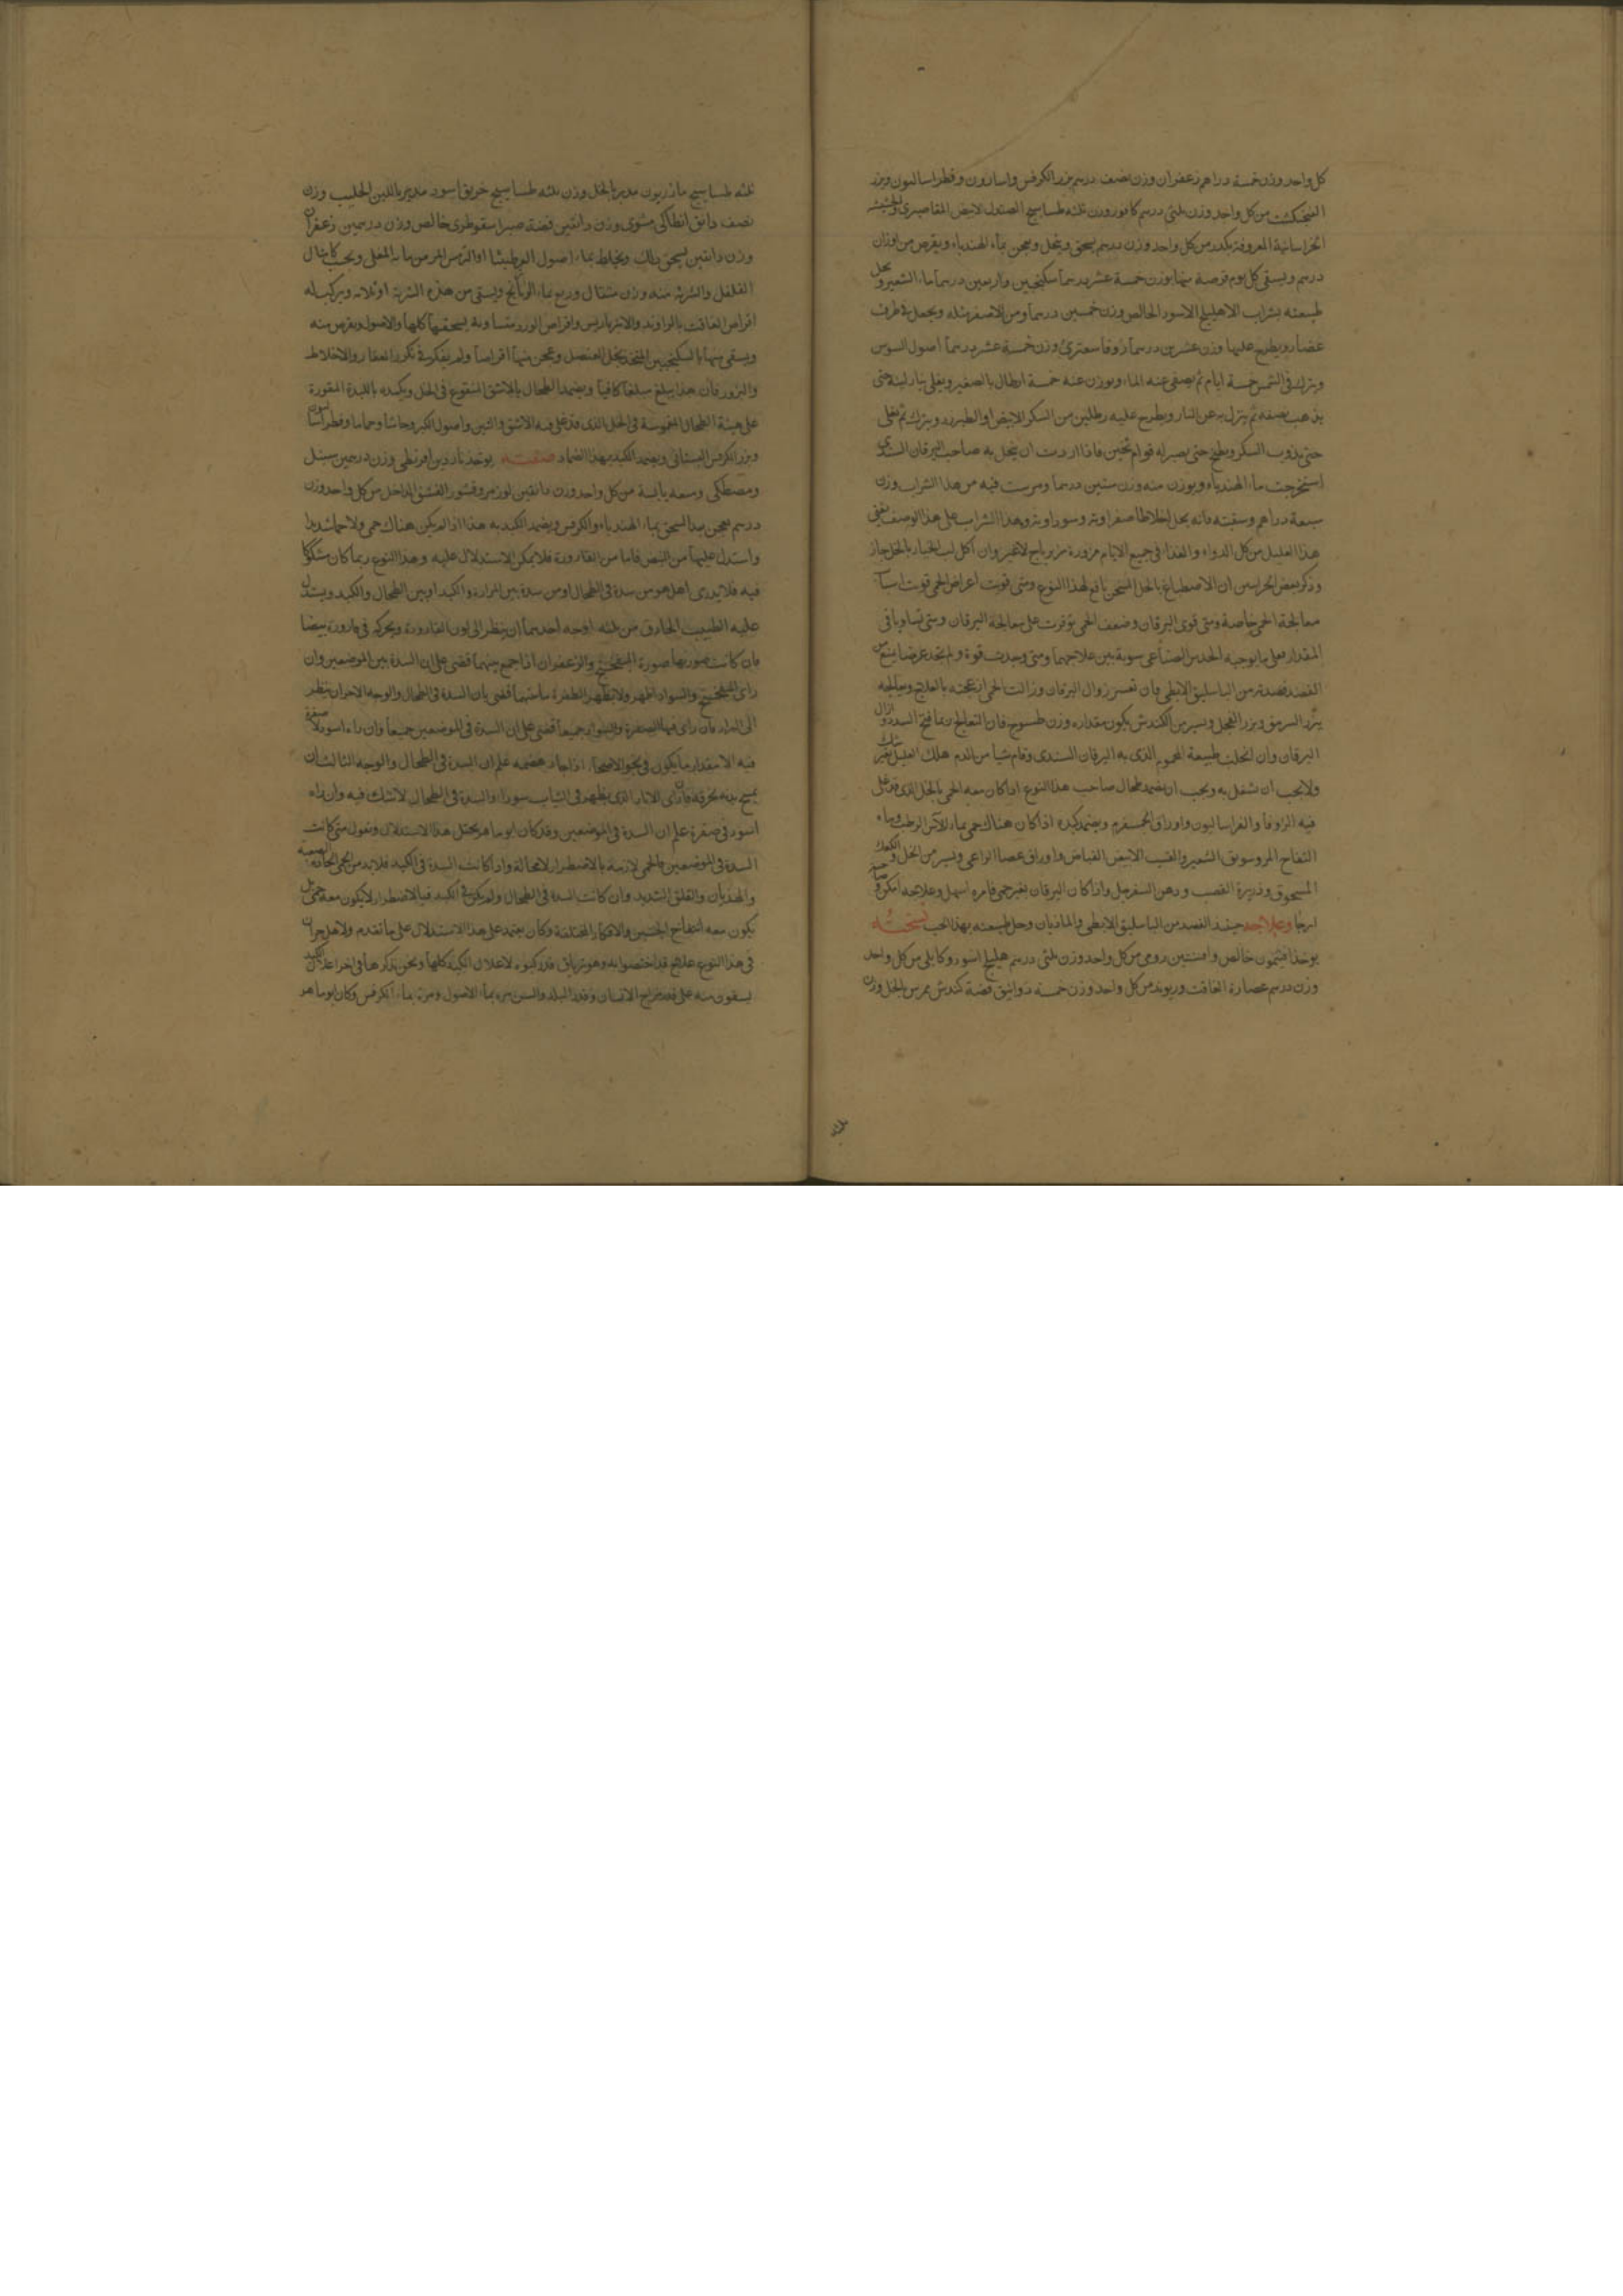 كل واحد وزن خمسة دراهم زعفران وزن نصف درهم بزر الكرفس واسارون وفطراساليون وبزر
الفنجنكشت من كل واحد وزن ثلثى درهم كافور وزن ثلثه طساسيج الصندل الابيض المقاصيرى
الخراسانية المعروفة من كل واحد وزن درهم يسحق وينخل ويعجن بماء الهندباء ويقرص من اوزان
درهم ويسقى كل يوم قرصة منها بوزن خمسة عشر درهما سكنجبين واربعين درهما ماء الشعير
طبيعته بشراب الاهليلج الاسود الخالص وزن خمسين درهما ومن الاصفر مثله ويجعل فى ظرف
غضار ويطرح عليها وزن عشرين درهما زوفا سعترى وزن خمسة عشر درهما اصول السوس
ويترك فى الشمس خمسة ايام ثم يصفى عنه الماء ويوزن عنه خمسة ارطال بالصغير ويغلى بنار لينة حتى
يذهب نصفه ثم ينزل به عن النار ويطرح عليه رطلين من السكر الابيض او الطبرزد ويترك ثم يغلى
حتى يذوب السكر ويطبخ حتى يصير له قوام ثخين فاذا اردت ان ينحل به صاحب اليرقان السددى
استخرجت ماء الهندباء ويوزن منه وزن ستين درهما ومرست فيه من هذا الشراب وزن
سبعة دراهم وسقيته فانه يحل اخلاطا صفراوية وسوداوية وهذا الشراب على هذا الوصف يغنى
هذا العليل من كل الدواء والغذاء فى جميع الايام مزورة زيرباج لاغير وان اكل لب الخيار بالخل جاز
وذكر بعض الخراسيين ان الاصطباغ بالخل المسخن نافع لهذا النوع ومتى قويت اعراض الحمى قويت اسباب
معالجة الحمى خاصة ومتى قوى اليرقان وضعف الحمى توفرت على معالجة اليرقان ومتى تساويا فى
المقدار فعلى ما يوجبه الحدس الصناعى سوية بين علاجهما ومتى وجدت قوة ولم تجد عرضا يمنع من
الفصد فصدته من الباسليق الابطى فان تعسر زوال اليرقان وزالت الحمى ازعجته بالعلاج
بزر السرمق وبزر الفجل ويسير من الكندش يكون مقداره وزن طسوج فان التعالج ربما فتح السدد
اليرقان وان انحلت طبيعة المحموم الذى به اليرقان السددى وقام شيا من الدم هلك العليل
ولا يجب ان تشغل به ويجب ان يضمد طحال صاحب هذا النوع اذا كان معه الحمى بالخل الذى قد غلى
فيه الزوفا والفراساليون واوراق الخمسفرم ويضمد كبده اذا كان هناك حمى بماء الآس الرطب وماء
التفاح المر وسويق الشعير والقسب الابيض القباض واوراق عصا الراعى ويسير من الخل
المسحوق وذريرة القصب ودهن السفرجل واذا كان اليرقان بغير حمى فامره اسهل وعلاجه امكن
ارجا وعلاجه حينئذ الفصد من الباسليق الابطى والماذيان وحل طبيعته بهذا الحب نسخته
يوخذ افيثمون خالص وافسنتين رومى من كل واحد وزن ثلثى درهم هليلج اسود وكابلى من كل واحد
وزن درهم عصارة الغافت وريوند من كل واحد وزن خمسة دوانيق فضة كندش مربى بالخل وزن
ثلثه طساسيج مازريون مدبر بالخل وزن ثلثه طساسيج خربق اسود مدبر باللبن الحليب وزن
نصف دانق انطاكى مشوى وزن دانقين فضة صبر اسقوطرى خالص وزن درهمين زعفران
وزن دانقين يسحق ذلك ويخلط بماء اصول العرطنيثا او الترمس المر من مائه المغلى ويحبب كامثال
الفلفل والشربة منه وزن مثقال وربع بماء الرازيانج ويسقى من هذه الشربة او ثلاثه ويركب له
اقراص الغافت بالراوند والانبرباريس واقراص الورد متساوية يسحقها كلها والاصول ويقرص منه
ويسقى منها بالسكنجبين المتخذ بخل العنصل وعجن منها اقراصا ولم يفكر فى تكرر العقار والاخلاط
والبزور فان هذا يبلغ مبلغا كافيا ويضمد الطحال بالاشق المنقوع فى الخل ويكمده باللبدة المقورة
على هيئة الطحال المغموسة فى الخل الذى قد غلى فيه الاشق والتين واصول الكبر وحاشا وحماما
وبزر الكرفس البستانى ويضمد الكبد بهذا الضماد صفته يوخذ ناردين افرنطى وزن درهمين سنبل
ومصطكى وميعه يابسة من كل واحد وزن دانقين لوز مر وقشور الفستق الداخل من كل واحد وزن
درهم يعجن بعد السحق بماء الهندباء والكرفس ويضمد الكبد به هذا اذا لم يكن هناك حمى ولا حما شديدا
واستدل عليها من النبض فاما من القارورة فلا يمكن الاستدلال عليه وهذا النوع ربما كان مشكوكا
فيه فلا يدرى اهل هو من سدة فى الطحال او من سدة بين المرارة والكبد او بين الطحال والكبد ويستدل
عليه الطبيب الحاذق من ثلثه اوجه احدهما ان ينظر الى لون القارورة ويحركه فى قارورة بيضا
فان كانت صورتها صورة البنفسج والزعفران اذا جمع بينهما قضى على ان السدة بين الموضعين وان
راى البنفسج والسواد اظهر ولا تظهر الصفرة قضى بان السدة فى الطحال والوجه الاخر ان ينظر
الى البراز فان راى فيها الصفرة والسواد جميعا قضى على ان السدة فى الموضعين جميعا وان راه اسود لا صفرة
فيه الا مقدار ما يكون فى نجو الاصحاء اذا جاد هضمه علم ان السدة فى الطحال والوجه الثالث ان
يمسح بدنه بخرقة فان راى الاثار الذى يظهر فى الثياب سودا فالسدة فى الطحال لا شك فيه وان راه
اسود فى صفرة علم ان السدة فى الموضعين وقد كان ابو ماهر يحتمل هذا الاستدلال ونقول متى كانت
السدة فى الموضعين فالحمى لازمة بالاضطرار لا محالة واذا كانت السدة فى الكبد فلا بد من الحمى الحادة الصعبة
والهذيان والقلق الشديد وان كانت السدة فى الطحال ولم يكن فى الكبد فبالاضطرار لا يكون معه حمى بل
يكون معه انتفاخ الجنبين والافكار المختلفة وكان يعتمد على هذا الاستدلال على ما تقدم ولاهل حران
فى هذا النوع علاج قد اختصوا به وهو ترياق قد ركبوه لاعلال الكبد كلها ونحن نذكرها فى اخر اعلال الكبد
يسقون منه على قدر مزاج الانسان وقدر البلد والسن مرة بماء الاصول ومرة بماء الكرفس وكان ابو ماهر